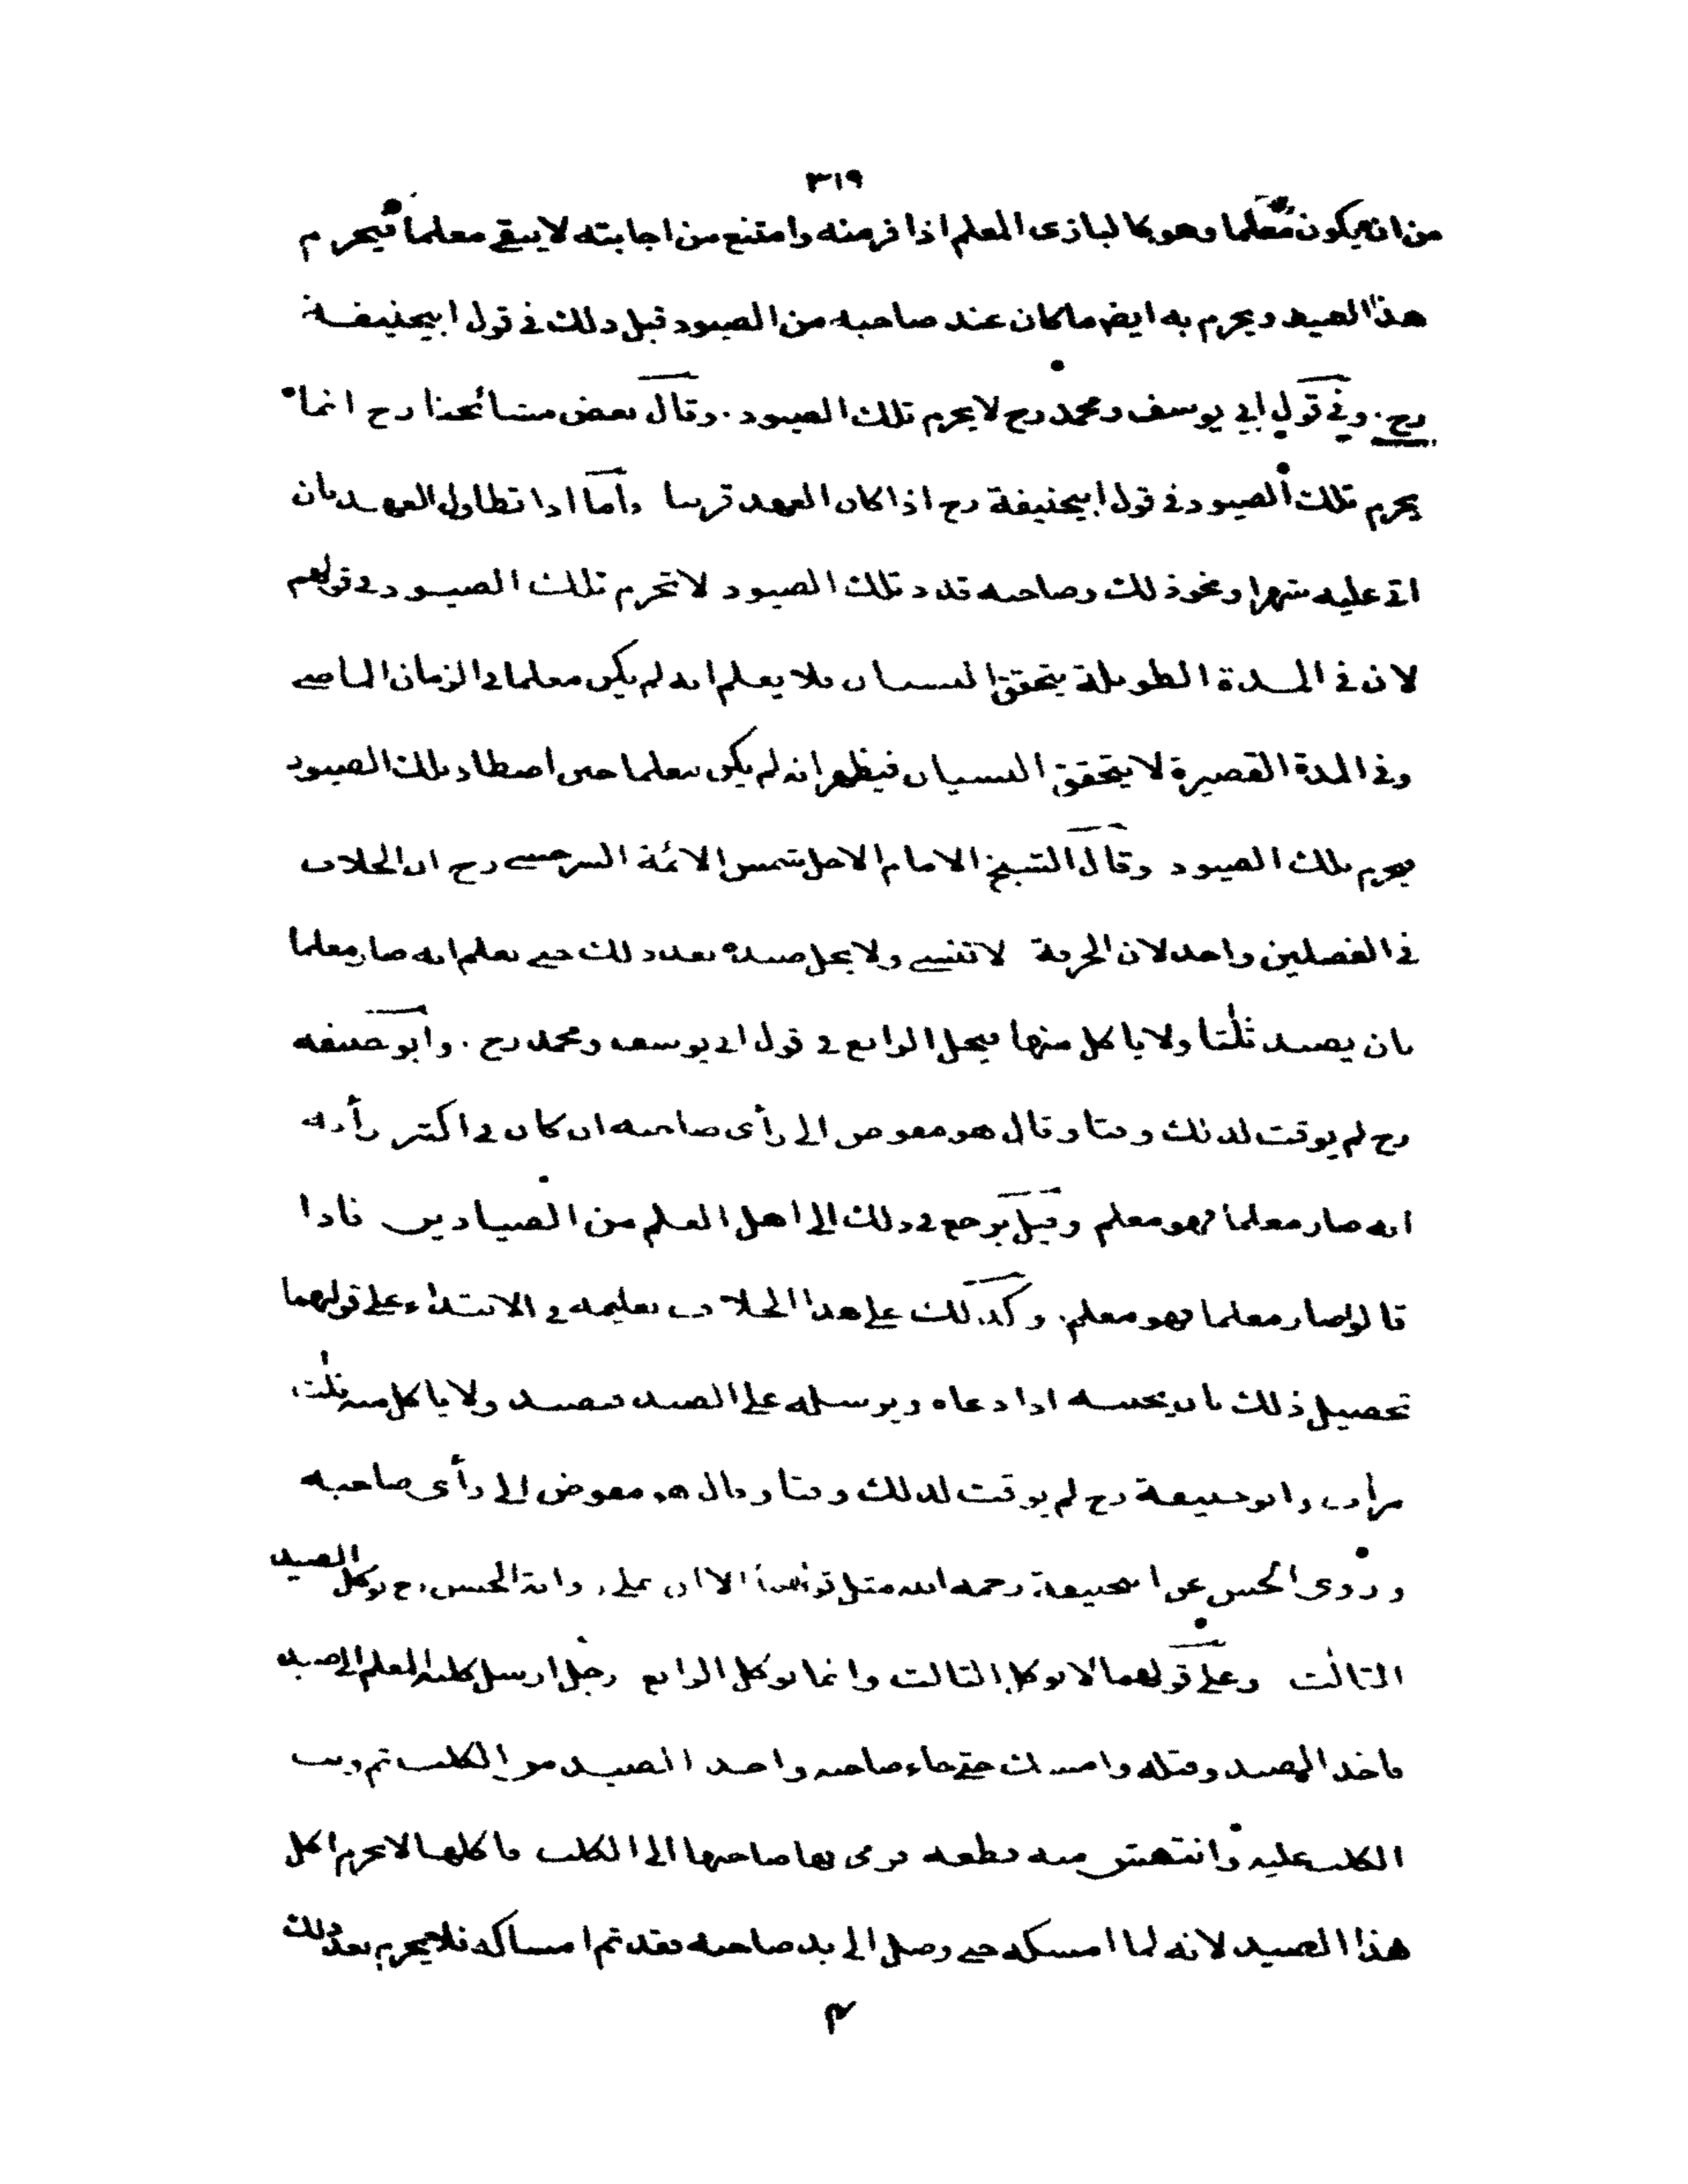 ٣١٩
من ان يكون معلما وهو كالبازى المعلم اذا فر منه وامتنع من اجابته لا يبقى معلما فيحرم
هذا الصيد ويحرم به ايضا ما كان عند صاحبه من الصيود قبل ذلك في قول ابيحنيفة
رح . وفي قول ابي يوسف ومحمد رح لا يحرم تلك الصيود . وقال بعض مشائخنا رح انما
يحرم تلك الصيود في قول ابيحنيفة رح اذا كان العهد قريبا واما اذا تطاول العهد بان
اتى عليه شهرا ونحو ذلك وصاحبه قدد تلك الصيود لا تحرم تلك الصيود في قولهم
لان في المدة الطويلة يتحقق النسيان فلا يعلم انه لم يكن معلما في الزمان الماضي
وفي المدة القصيرة لا يتحقق النسيان فيظهر انه لم يكن معلما حين اصطاد تلك الصيود
فيحرم تلك الصيود وقال الشيخ الامام الاجل شمس الائمة السرخسي رح ان الخلاف
في الفصلين واحد لان الحرمة لا تنسى ولا يحل صيده بعد ذلك حتى يعلم انه صار معلما
بان يصيد ثلثا ولا ياكل منها فيحل الرابع في قول ابي يوسف ومحمد رح . وابو حنيفه
رح لم يوقت لذلك وقتا وقال هو مفوض الى رأى صاحبه ان كان في اكثر رأيه
انه صار معلما فهو معلم وقيل يرجع في ذلك الى اهل العلم من الصيادين فاذا
قالوا صار معلما فهو معلم . وكذلك على هذا الخلاف تعليمه في الابتداء على قولهما
تحصيل ذلك بان يجيبه اذا دعاه ويرسله على الصيد فيصيد ولا ياكل منه ثلث
مرات وابو حنيفة رح لم يوقت لذلك وقتا وقال هو مفوض الى رأى صاحبه
وروى الحسن عن ابيحنيفة رحمه الله مثل قولهما الا ان على رواية الحسن رح يوكل الصيد
الثالث وعلى قولهما لا يوكل الثالث وانما يوكل الرابع رجل ارسل كلبه المعلم الى صيد
فاخذ الصيد وقتله وامسك حتى جاء صاحبه واخذ الصيد من الكلب ثم وثب
الكلب عليه وانتهش منه قطعه فرمى بها صاحبها الى الكلب فاكلها لا يحرم اكل
هذا الصيد لانه لما امسكه حتى وصل الى يد صاحبه فقد تم امساكه فلا يحرم بعد ذلك